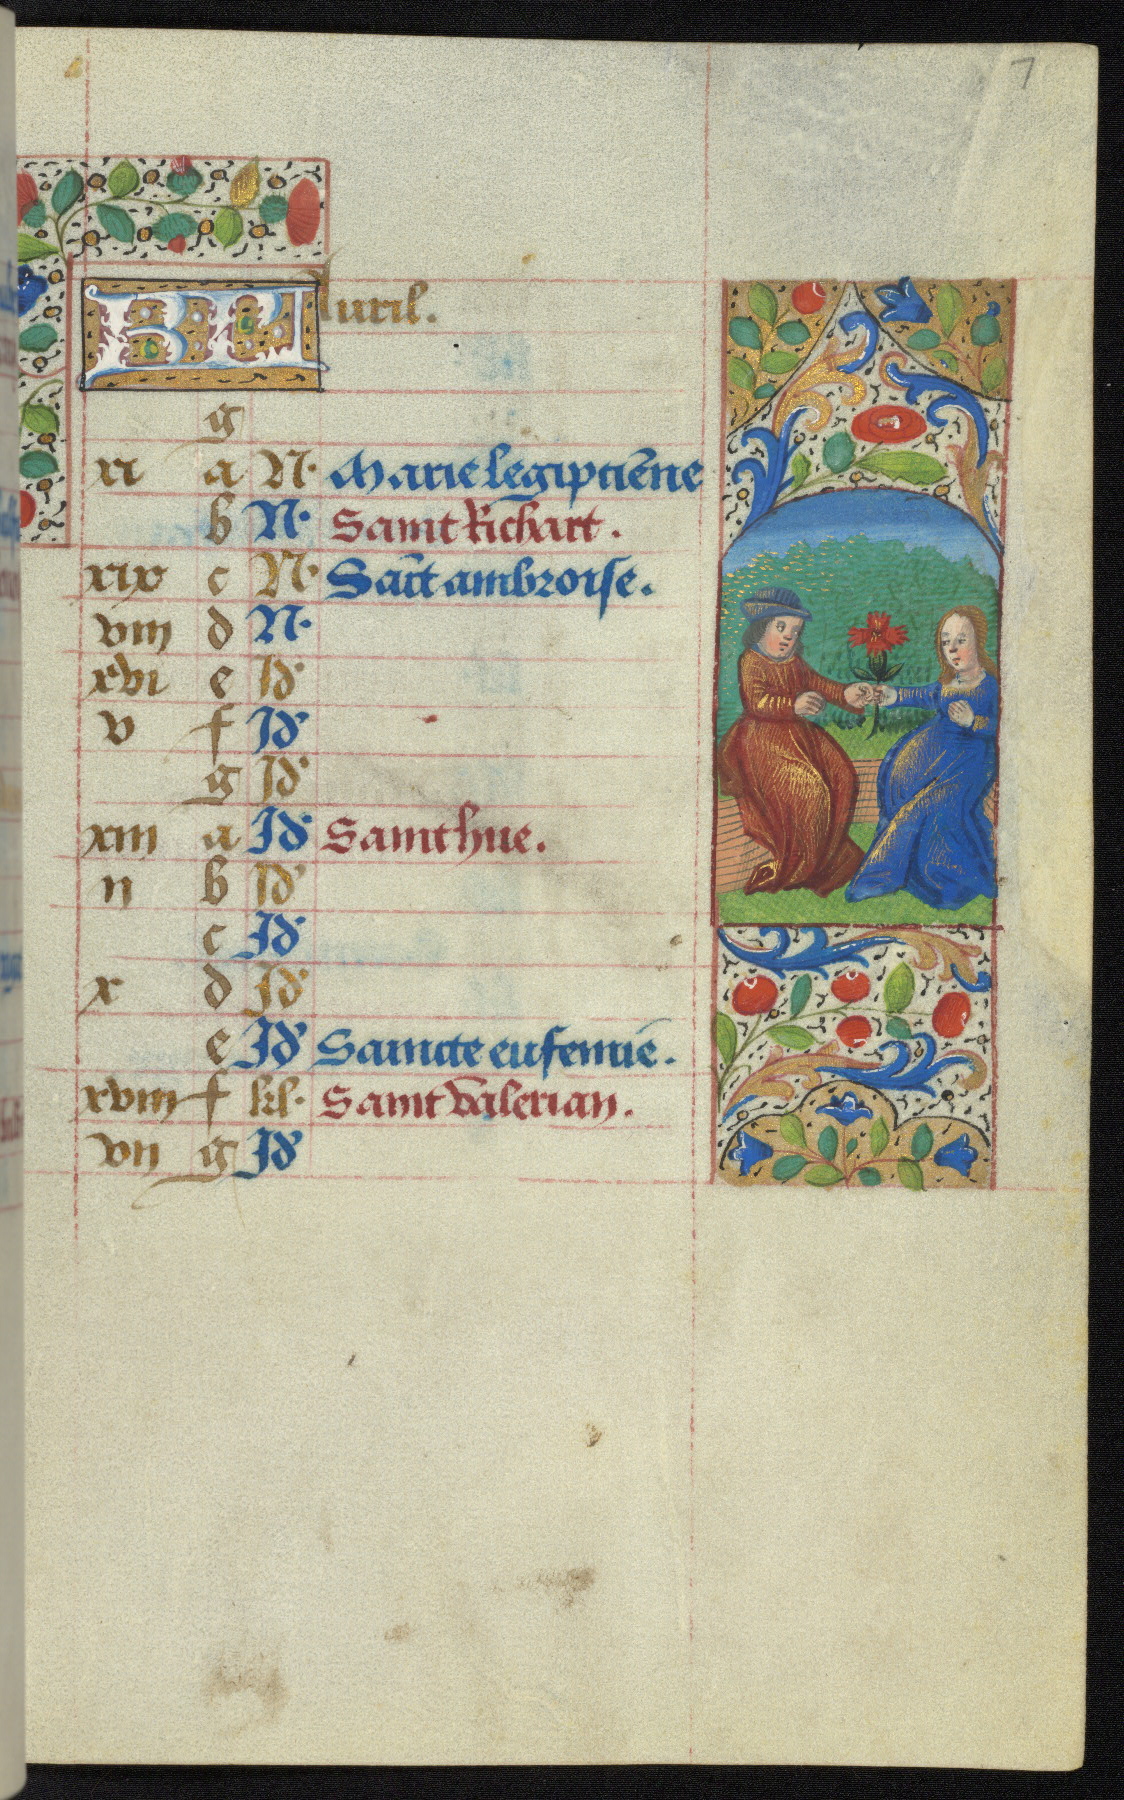 7
KL Auril.
g
xi a N. Marie legipciēne
b N. Saint Richart.
xix c N. Sāct ambroise.
viii d N.
xvi e Id
v f Id
g Id
xiii a Id Saint hue.
ii b Id
c Id
x d Id
e Id Saincte eufemie.
xviii f kl. Saint Valerian.
vii g Id